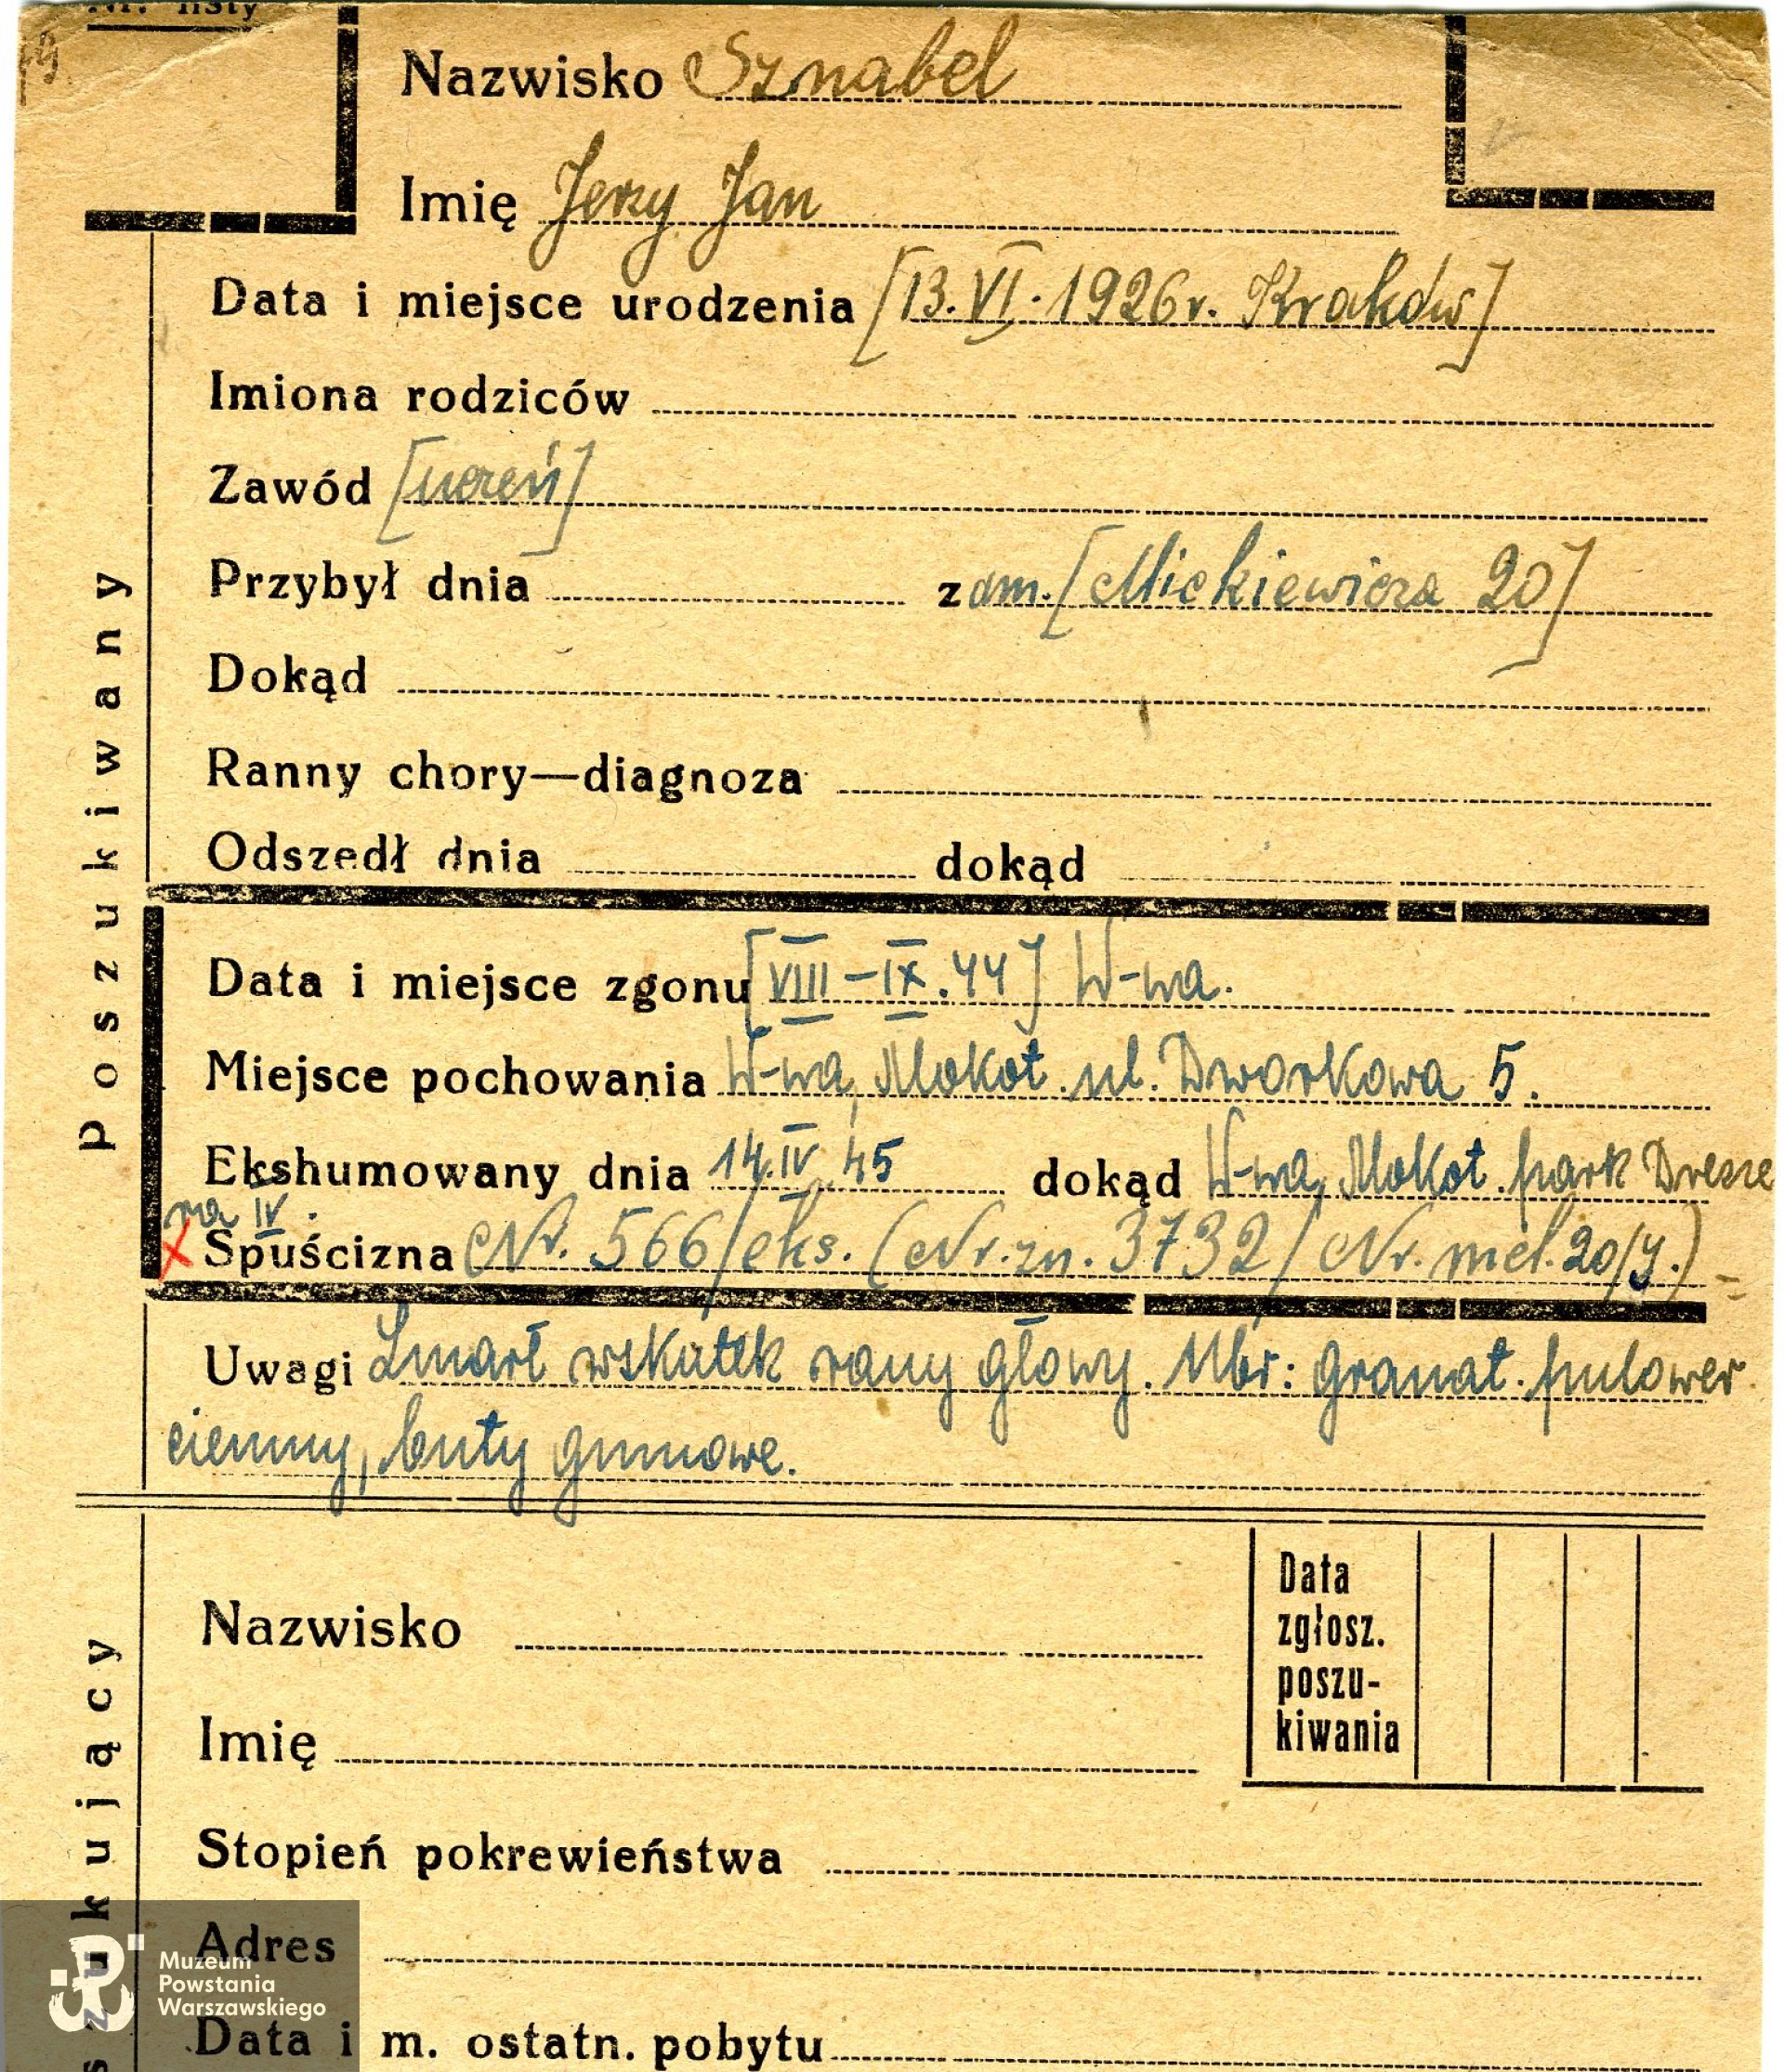 Nr. listy
Nazwisko Sznabel
Imię Jerzy Jan
Data i miejsce urodzenia [13.VI.1926r. Kraków]
Imiona rodziców
Zawód [uczeń]
Przybył dnia zam. [Mickiewicza 20]
Dokąd
Ranny chory—diagnoza
Odszedł dnia dokąd
Data i miejsce zgonu [VIII-IX.44] W-wa.
Miejsce pochowania W-wa, Mokot. ul. Dworkowa 5.
Ekshumowany dnia 14.IV.45 dokąd W-wa, Mokot. park Dresze
ra IV.
x Spuścizna Nr. 566/eks. (Nr. zn. 3732/ Nr. mel. 20/y.)
Uwagi Zmarł wskutek rany głowy. Ubr: granat. pulower
ciemny, buty gumowe.
Poszukiwany
Nazwisko
Imię
Data
zgłosz.
poszu-
kiwania
Stopień pokrewieństwa
Adres
Data i m. ostatn. pobytu
szukujący
Muzeum
Powstania
Warszawskiego